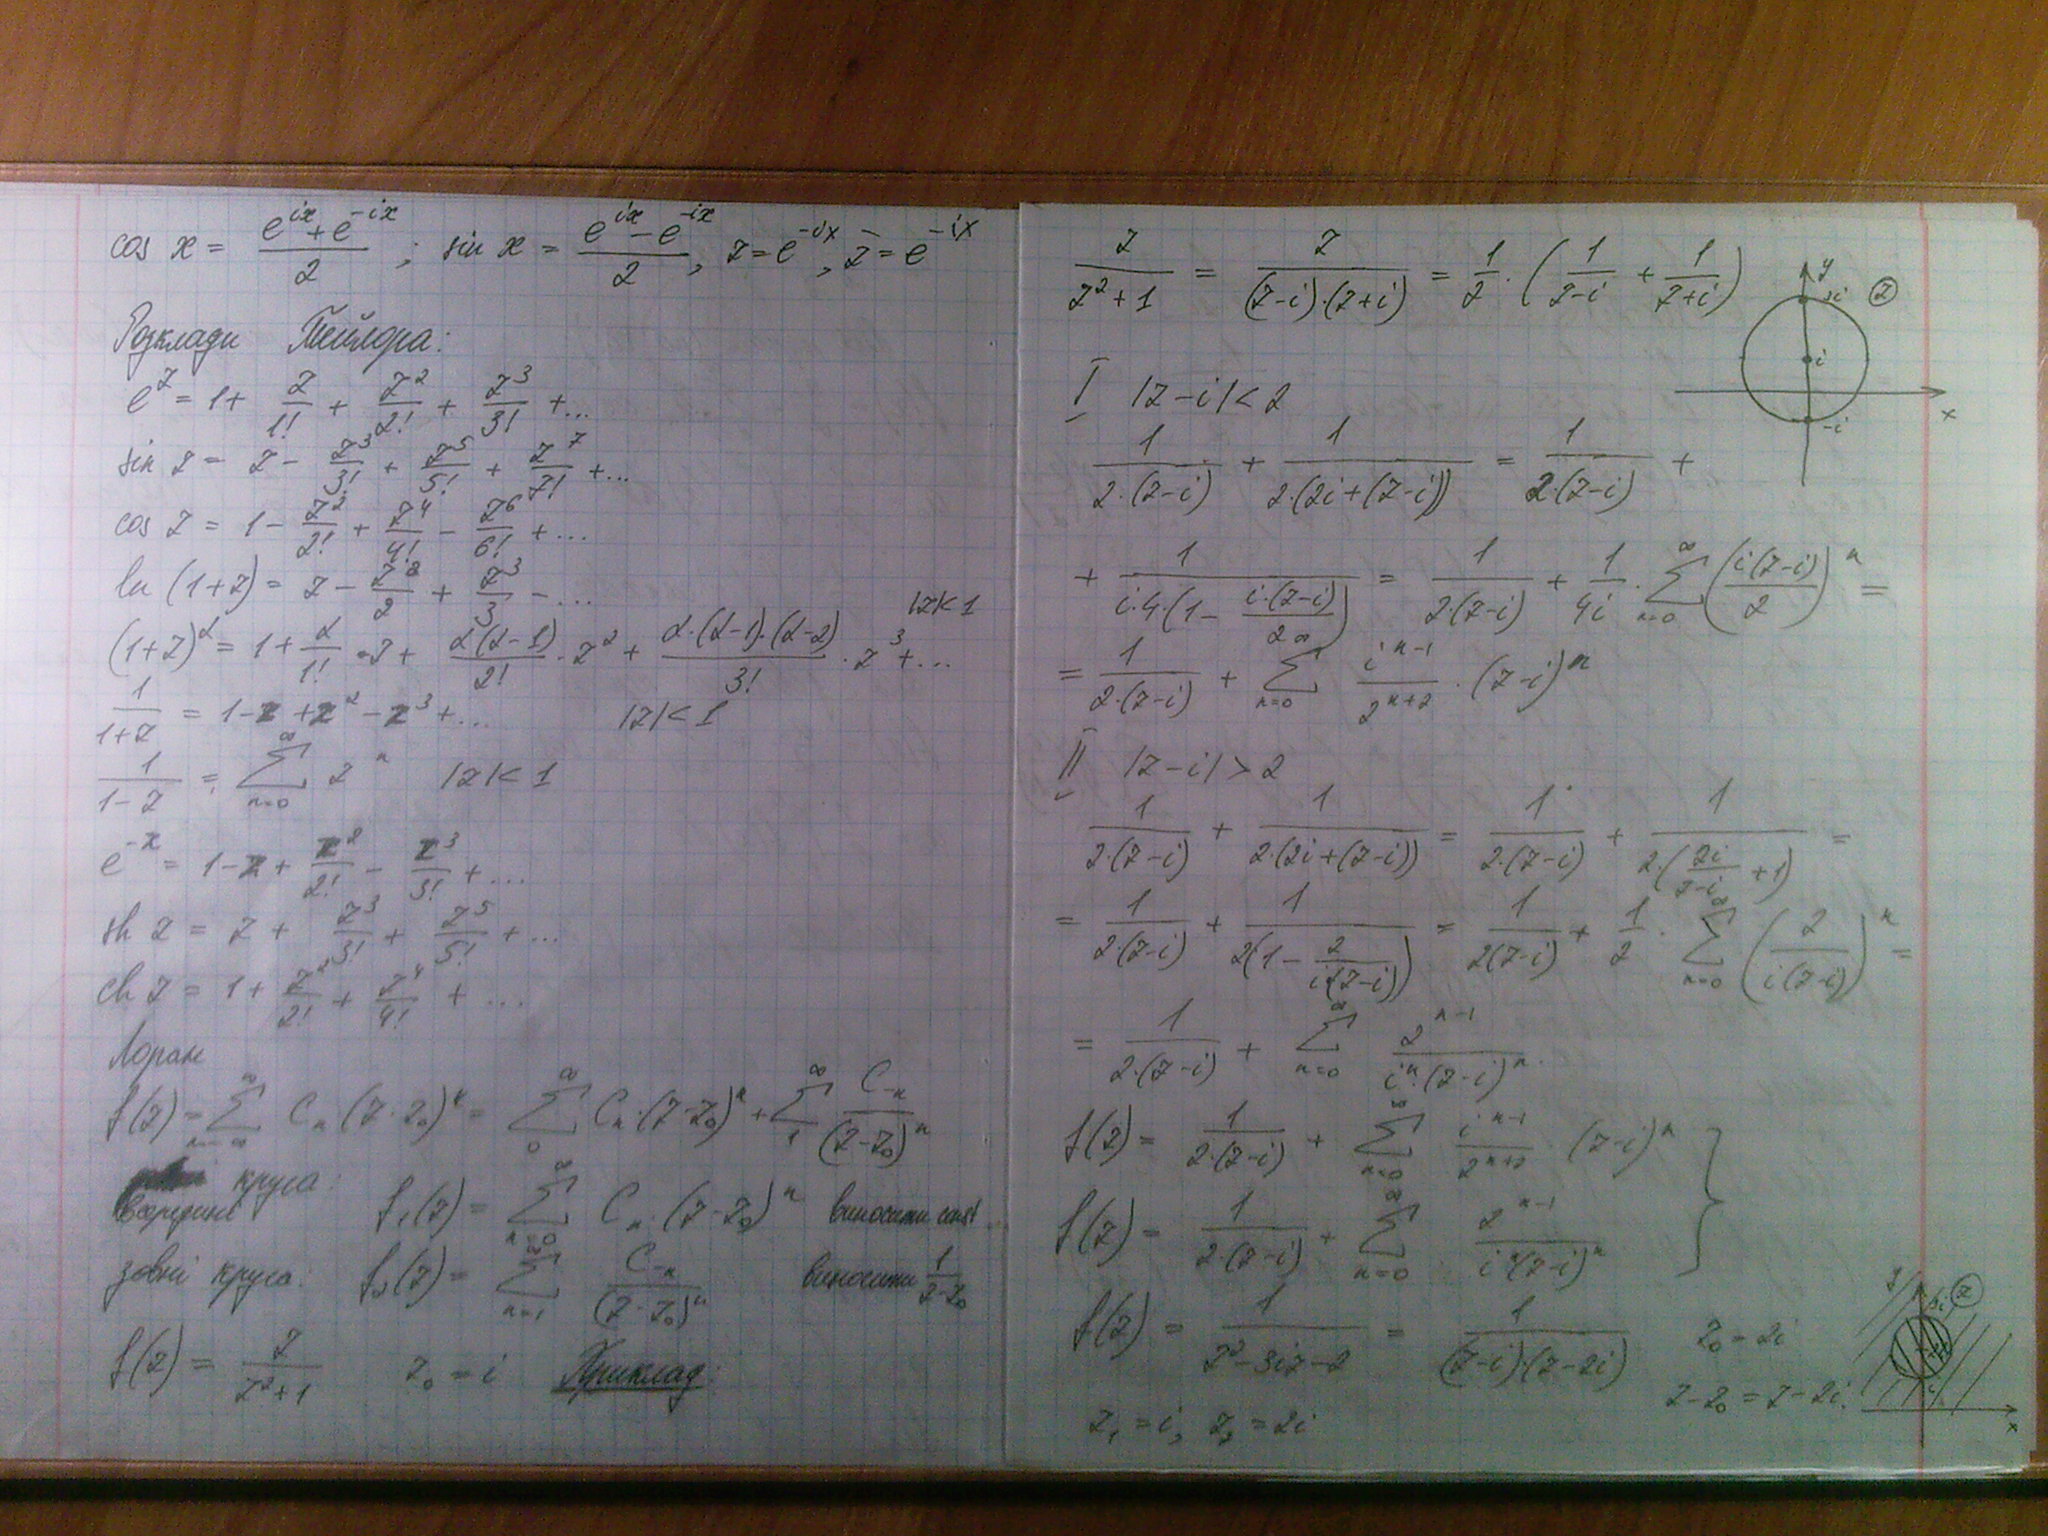 cos x = (e^{ix} + e^{-ix})/2 ; sin x = (e^{ix} - e^{-ix})/2, z = e^{-ix}, z̄ = e^{-ix}
Розклади Тейлора:
e^z = 1 + z/1! + z^2/2! + z^3/3! + ...
sin z = z - z^3/3! + z^5/5! + z^7/7! + ...
cos z = 1 - z^2/2! + z^4/4! - z^6/6! + ...
ln (1+z) = z - z^2/2 + z^3/3 - ... |z|<1
(1+z)^α = 1 + α/1! · z + α(α-1)/2! · z^2 + α·(α-1)·(α-2)/3! · z^3 + ...
1/(1+z) = 1 - z + z^2 - z^3 + ... |z|<1
1/(1-z) = ∑_{n=0}^{∞} z^n |z|<1
e^{-z} = 1 - z + z^2/2! - z^3/3! + ...
sh z = z + z^3/3! + z^5/5! + ...
ch z = 1 + z^2/2! + z^4/4! + ...
Лоран
f(z) = ∑_{n=-∞}^{∞} C_n (z-z_0)^n = ∑_{0}^{∞} C_n·(z-z_0)^n + ∑_{1}^{∞} C_{-n}/(z-z_0)^n
всередині круга: f_1(z) = ∑_{n=0}^{∞} C_n·(z-z_0)^n виносити const
зовні круга: f_2(z) = ∑_{n=1}^{∞} C_{-n}/(z-z_0)^n виносити 1/(z-z_0)
f(z) = z/(z^2+1) z_0 = i Приклад:
z/(z^2+1) = z/((z-i)·(z+i)) = 1/2·(1/(z-i) + 1/(z+i))
y
3i
z
i
-i
x
I |z-i|<2
1/(2·(z-i)) + 1/(2·(2i+(z-i))) = 1/(2·(z-i)) +
+ 1/(i·4·(1 - i·(z-i)/2)) = 1/(2·(z-i)) + 1/(4i)·∑_{n=0}^{∞} (i(z-i)/2)^n =
= 1/(2·(z-i)) + ∑_{n=0}^{∞} i^{n-1}/2^{n+2}·(z-i)^n
II |z-i|>2
1/(2·(z-i)) + 1/(2·(2i+(z-i))) = 1/(2·(z-i)) + 1/(2·(2i/(z-i) + 1)) =
= 1/(2·(z-i)) + 1/(2(1 - 2/(i(z-i)))) = 1/(2(z-i)) + 1/2·∑_{n=0}^{∞} (2/(i(z-i)))^n =
= 1/(2·(z-i)) + ∑_{n=0}^{∞} 2^{n-1}/(i^n·(z-i)^n)
f(z) = 1/(2·(z-i)) + ∑_{n=0}^{∞} i^{n-1}/2^{n+2} (z-i)^n }
f(z) = 1/(2·(z-i)) + ∑_{n=0}^{∞} 2^{n-1}/(i^n(z-i)^n)
f(z) = 1/(z^2-3iz-2) = 1/((z-i)·(z-2i)) z_0 = 2i
z-z_0 = z-2i.
z_1 = i, z_2 = 2i
y
3i
z
i
x